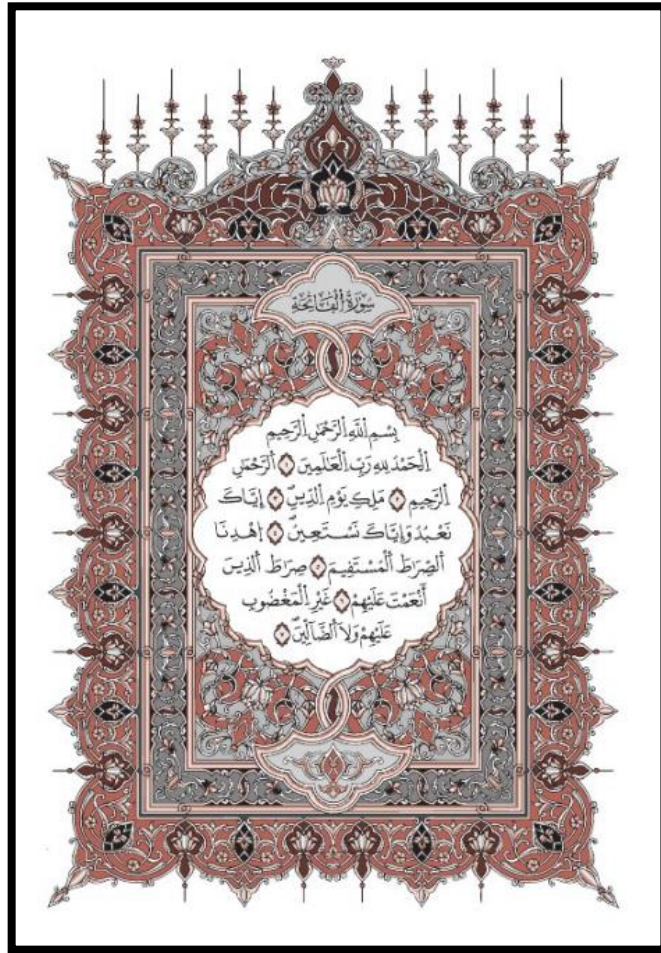 سُورَةُ الْفَاتِحَةِ
بِسْمِ اللَّهِ الرَّحْمَٰنِ الرَّحِيمِ
اِلْحَمْدُ لِلهِ رَبِّ الْعَٰلَمِينَ ١ اَلرَّحْمَٰنِ
اِلرَّحِيمِ ٢ مَلِكِ يَوْمِ اِلدِّينِ ٣ إِيَّاكَ
نَعْبُدُ وَإِيَّاكَ نَسْتَعِينُ ٤ اِهْدِنَا
اَلصِّرَٰطَ اَلْمُسْتَقِيمَ ٥ صِرَٰطَ اَلذِينَ
أَنْعَمْتَ عَلَيْهِمْ ٦ غَيْرِ اِلْمَغْضُوبِ
عَلَيْهِمْ وَلَا اَلضَّآلِّينَ ٧